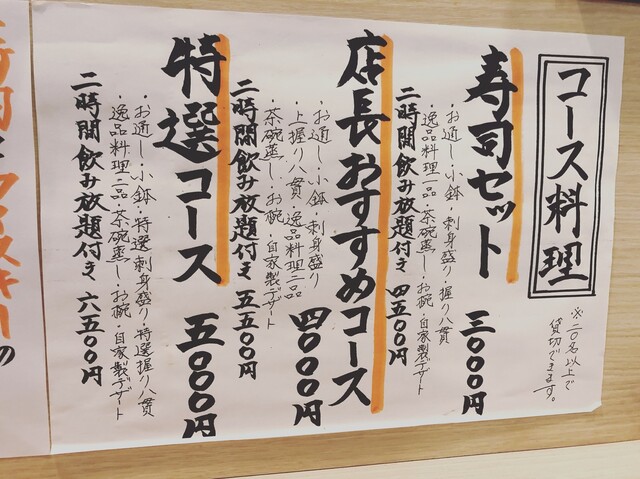 コース料理
※二〇名以上で
貸切できます。
寿司セット 三〇〇〇円
・お通し・小鉢・刺身盛り・握り八貫
・逸品料理一品・茶碗蒸し・お椀・自家製デザート
二時間飲み放題付き 四五〇〇円
店長おすすめコース 四〇〇〇円
・お通し・小鉢・刺身盛り
・上握り八貫・逸品料理二品
・茶碗蒸し・お椀・自家製デザート
二時間飲み放題付き 五五〇〇円
特選コース 五〇〇〇円
・お通し・小鉢・特選刺身盛り・特選握り八貫
・逸品料理二品・茶碗蒸し・お椀・自家製デザート
二時間飲み放題付き 六五〇〇円